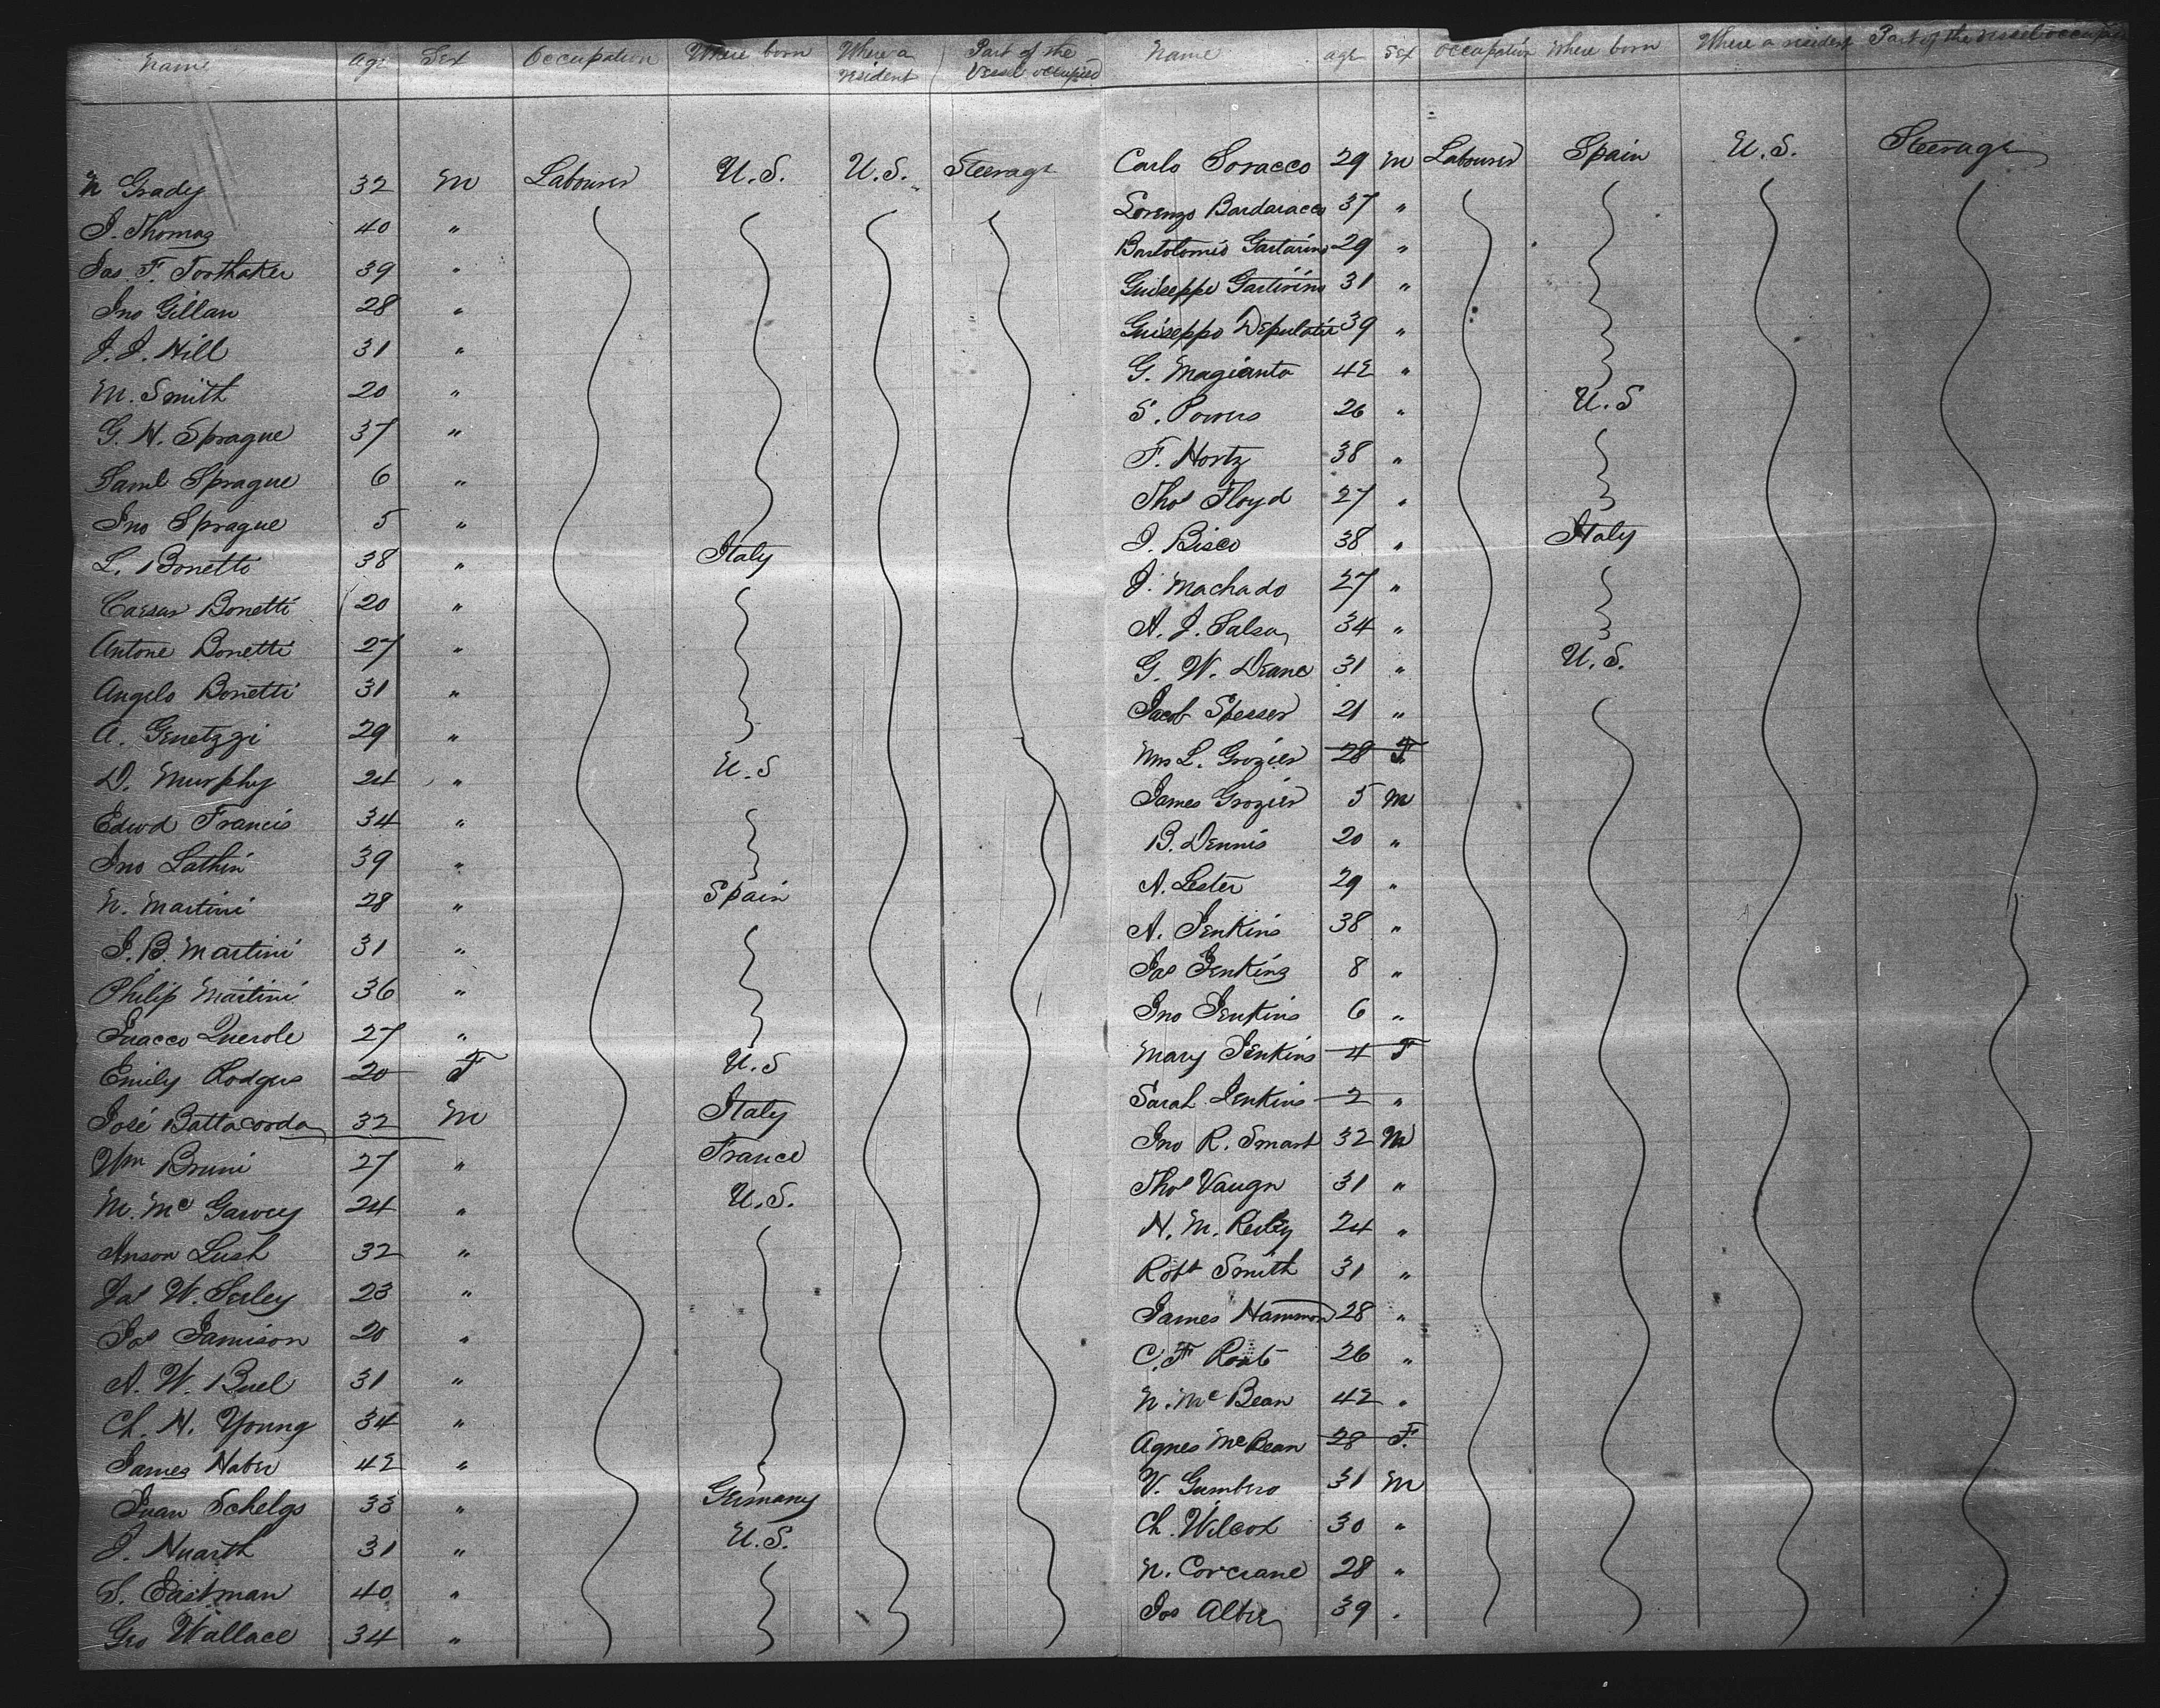 Name Age Sex Occupation Where born Where a resident Part of the Vessel occupied
N Grady 32 M Labourer U.S. U.S. Steerage
J. Thomas 40 "
Jas. F. Toothaker 39 "
Jno Gillan 28 "
J. J. Hill 31 "
M. Smith 20 "
G. H. Sprague 37 "
Saml Sprague 6 "
Jno Sprague 5 "
L. Bonetti 38 " Italy
Caesar Bonetti 20 "
Antone Bonetti 27 "
Angelo Bonetti 31 "
A. Genetzzi 29 "
D. Murphy 24 " U.S
Edwd Francis 34 "
Jno Lathin 39 "
N. Martini 28 " Spain
J. B. Martini 31 "
Philip Martini 36 "
Juacco Querole 27 "
Emily Rodgers 20 F U.S
José Battacorda 32 M Italy
Wm Bruni 27 " France
M. Mc Garvey 24 " U.S.
Anson Lush 32 "
Jas W. Serley 23 "
Jos Jamison 20 "
A. W. Buel 31 "
Ch. H. Young 34 "
James Haber 42 "
Juan Schelgs 33 " Germany
J. Huarth 31 " U.S.
S. Eastman 40 "
Geo Wallace 34 "
Name age Sex Occupation Where born Where a resident Part of the vessel occupied
Carlo Soracco 29 M Labourer Spain U.S. Steerage
Lorenzo Bardaracco 37 "
Bartolomeo Gartarino 29 "
Guiseppe Gartirino 31 "
Guiseppo Depulatie 39 "
G. Magianto 42 "
S. Powers 26 " U.S
F. Hortz 38 "
Thos Floyd 27 "
J. Bisco 38 " Italy
J. Machado 27 "
A. J. Salsa 34 "
G. W. Deane 31 " U.S.
Jacob Spesser 21 "
Mrs L. Grozier 28 F
James Grozier 5 M
B. Dennis 20 "
A. Lester 29 "
A. Jenkins 38 "
Jas Jenkins 8 "
Jno Jenkins 6 "
Mary Jenkins 4 F
Sarah Jenkins 2 "
Jno R. Smart 32 M
Thos Vaugn 31 "
H. M. Reiley 24 "
Robt Smith 31 "
James Hammon 28 "
C. F. Roub 26 "
N. Mc Bean 42 "
Agnes McBean 28 F.
V. Gumbero 31 M
Ch. Wilcox 30 "
N. Corcrane 28 "
Jos Alber 39 "